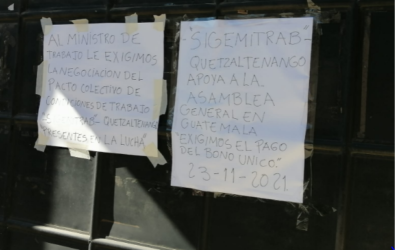 AL MINISTRO DE
TRABAJO LE EXIGIMOS
LA NEGOCIACION DEL
PACTO COLECTIVO DE
CONDICIONES DE TRABAJO
QUETZALTENANGO
PRESENTES EN LA LUCHA
-"SIGEMITRAB-
QUETZALTENANGO
APOYA A LA
ASAMBLEA
GENERAL EN
GUATEMALA
"EXIGIMOS EL PAGO
DEL BONO UNICO."
23-11-2021.